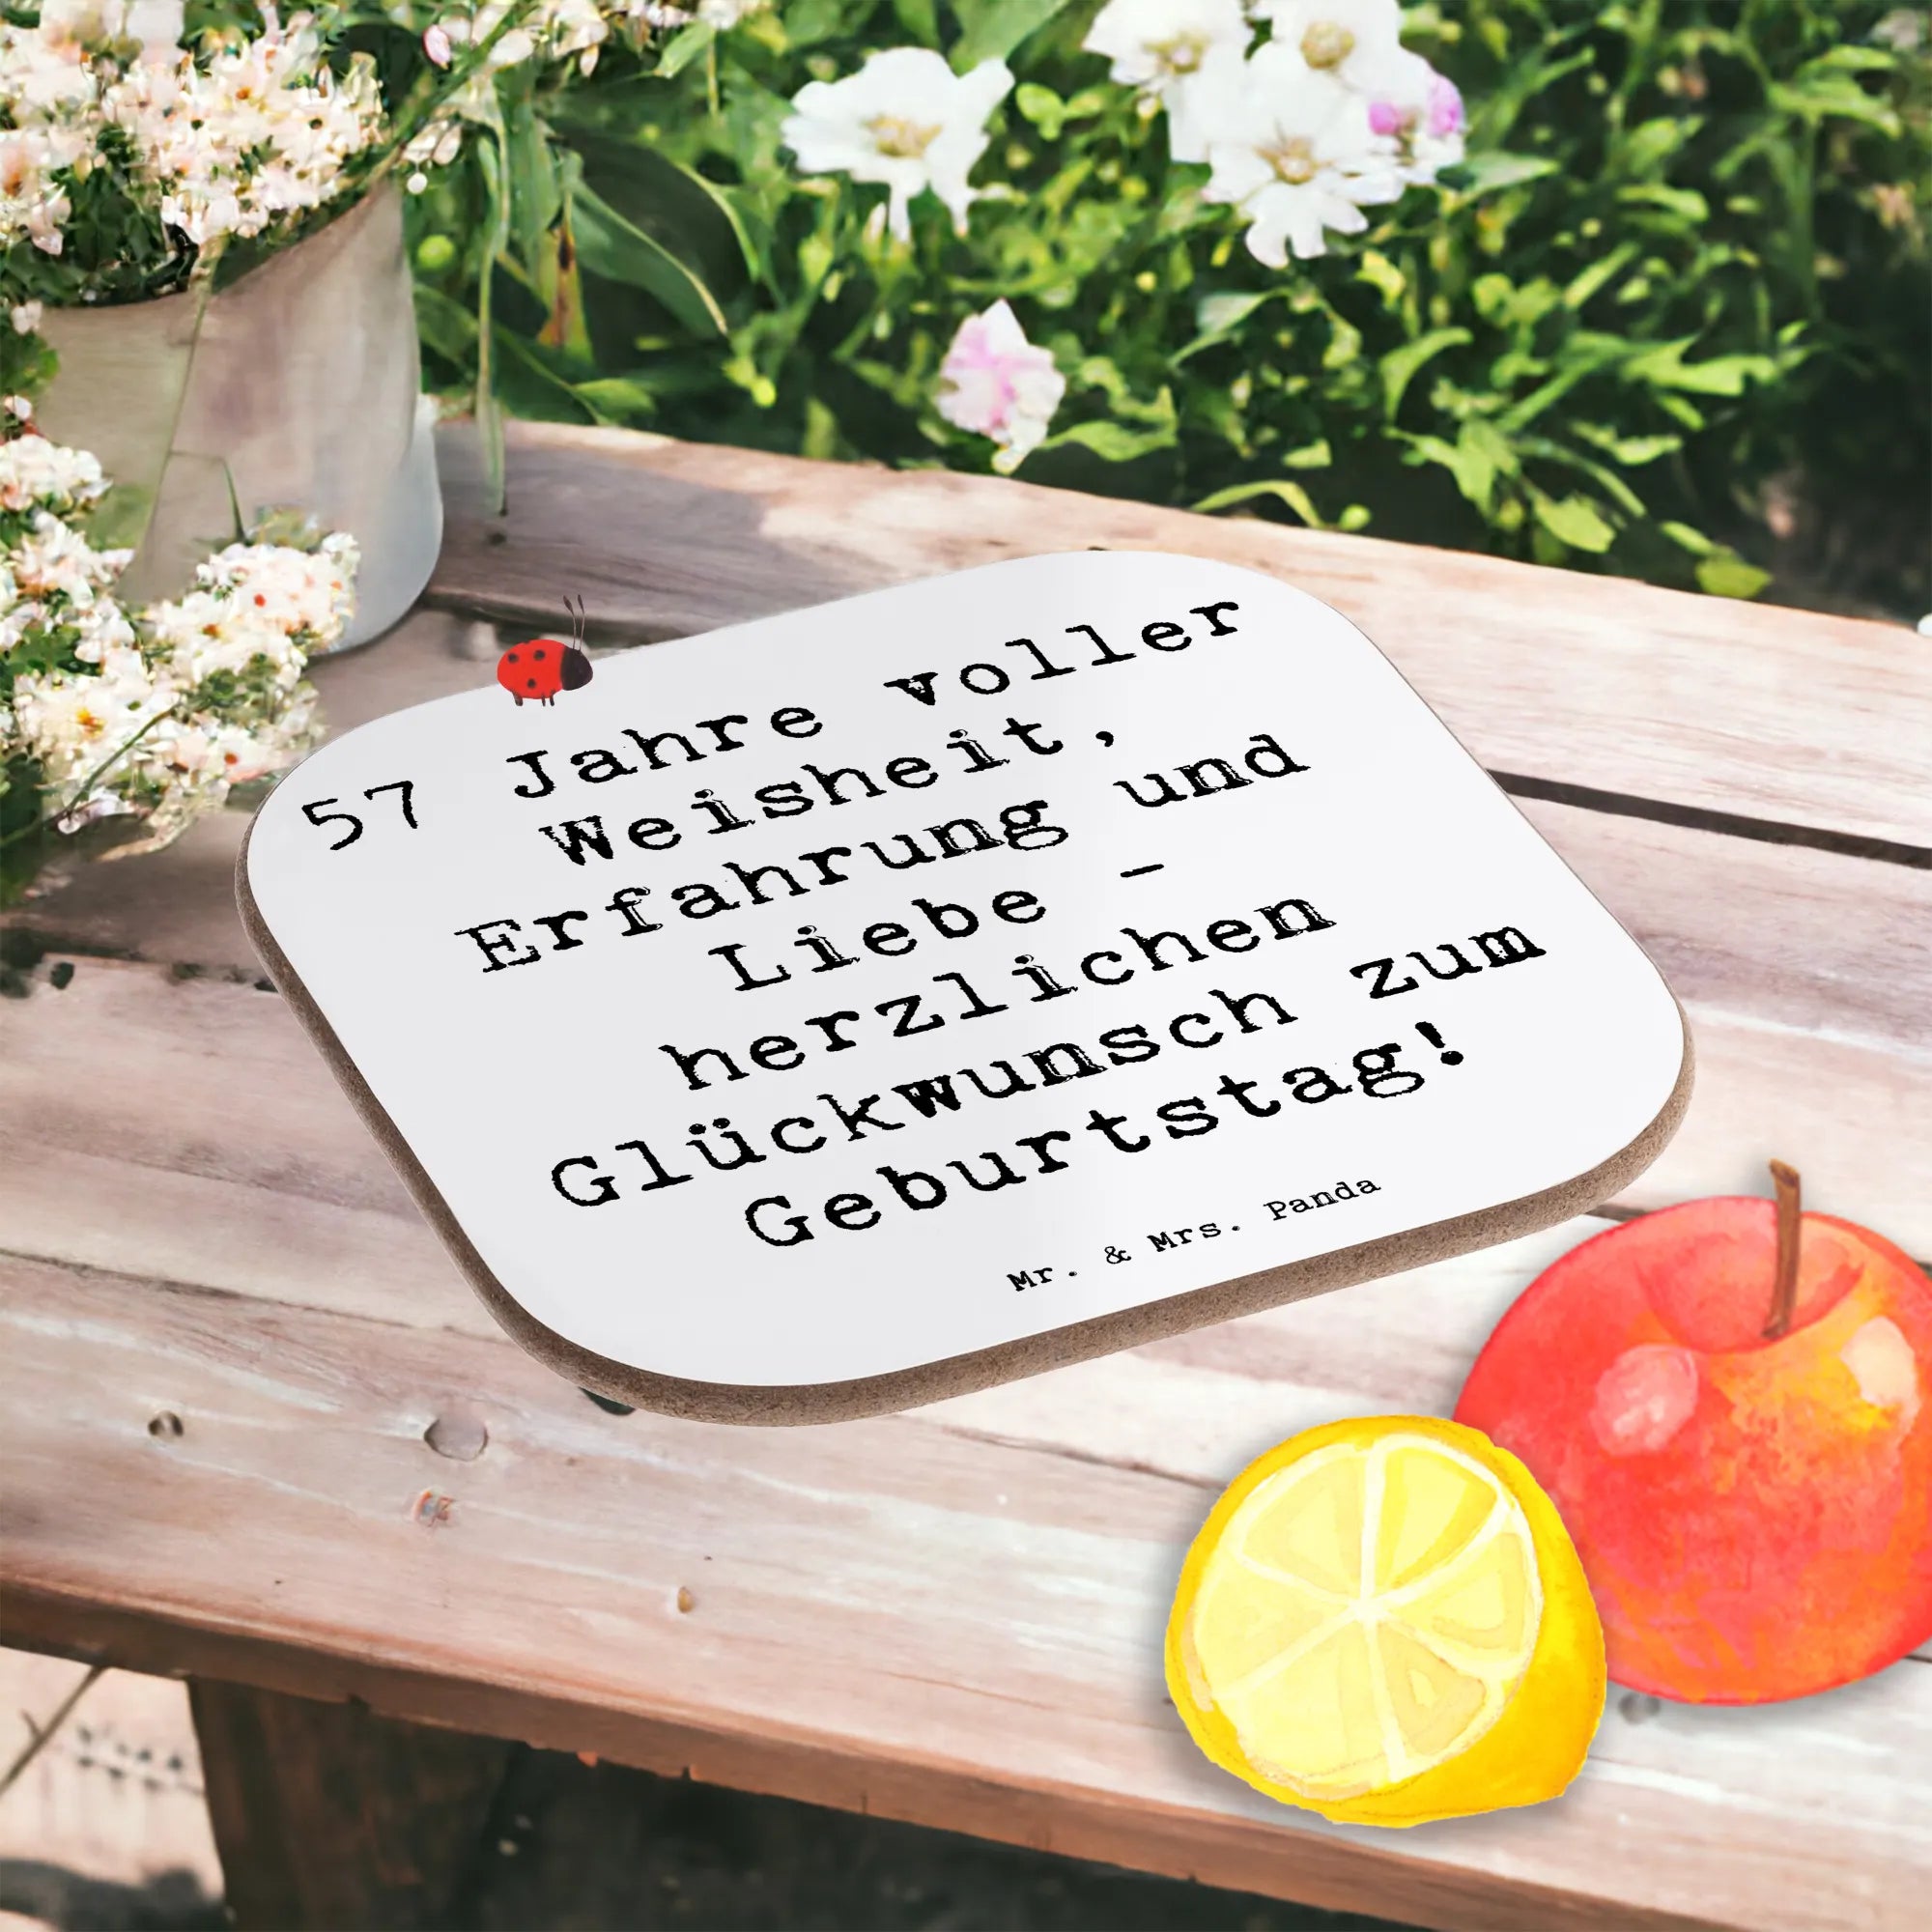 57 Jahre voller
Weisheit,
Erfahrung und
Liebe -
herzlichen
Glückwunsch zum
Geburtstag!
Mr. & Mrs. Panda